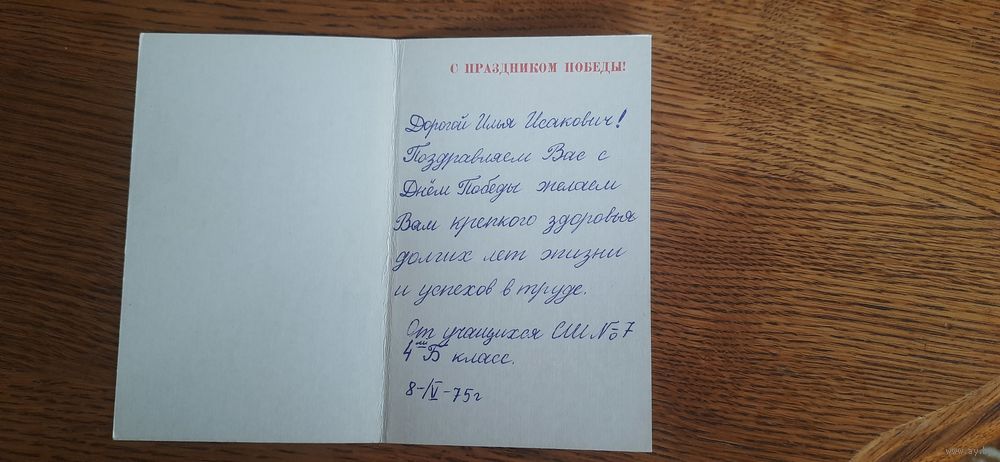 С ПРАЗДНИКОМ ПОБЕДЫ!
Дорогой Илья Исакович!
Поздравляем Вас с
Днём Победы желаем
Вам крепкого здоровья
долгих лет жизни
и успехов в труде.
От учащихся СШ №7
4 "Б" класс.
8-/V-75г